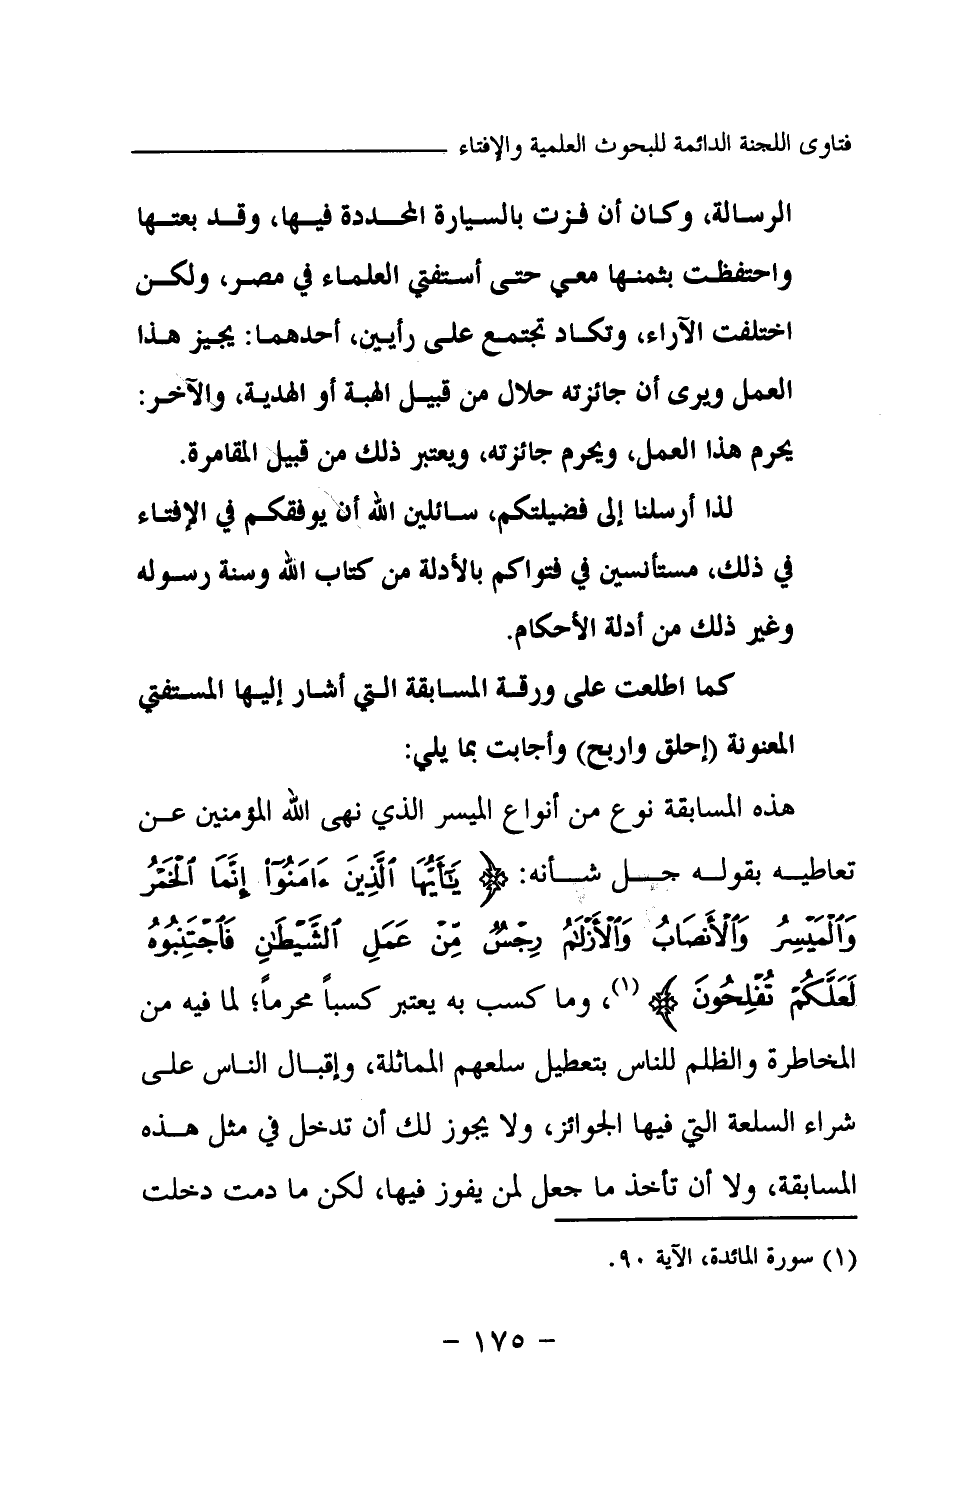 فتاوى اللجنة الدائمة للبحوث العلمية والإفتاء
الرسالة، وكان أن فزت بالسيارة المحددة فيها، وقد بعتها
واحتفظت بثمنها معي حتى أستفتي العلماء في مصر، ولكن
اختلفت الآراء، وتكاد تجتمع على رأيين، أحدهما: يجيز هذا
العمل ويرى أن جائزته حلال من قبيل الهبة أو الهدية، والآخر:
يحرم هذا العمل، ويحرم جائزته، ويعتبر ذلك من قبيل المقامرة.
لذا أرسلنا إلى فضيلتكم، سائلين الله أن يوفقكم في الإفتاء
في ذلك، مستأنسين في فتواكم بالأدلة من كتاب الله وسنة رسوله
وغير ذلك من أدلة الأحكام.
كما اطلعت على ورقة المسابقة التي أشار إليها المستفتي
المعنونة (إحلق واربح) وأجابت بما يلي:
هذه المسابقة نوع من أنواع الميسر الذي نهى الله المؤمنين عن
تعاطيه بقوله جل شأنه: ﴿ يَٰٓأَيُّهَا ٱلَّذِينَ ءَامَنُوٓا۟ إِنَّمَا ٱلْخَمْرُ
وَٱلْمَيْسِرُ وَٱلْأَنصَابُ وَٱلْأَزْلَٰمُ رِجْسٌ مِّنْ عَمَلِ ٱلشَّيْطَٰنِ فَٱجْتَنِبُوهُ
لَعَلَّكُمْ تُفْلِحُونَ ﴾ (١)، وما كسب به يعتبر كسباً محرماً؛ لما فيه من
المخاطرة والظلم للناس بتعطيل سلعهم المماثلة، وإقبال الناس على
شراء السلعة التي فيها الجوائز، ولا يجوز لك أن تدخل في مثل هذه
المسابقة، ولا أن تأخذ ما جعل لمن يفوز فيها، لكن ما دمت دخلت
(١) سورة المائدة، الآية ٩٠.
- ١٧٥ -